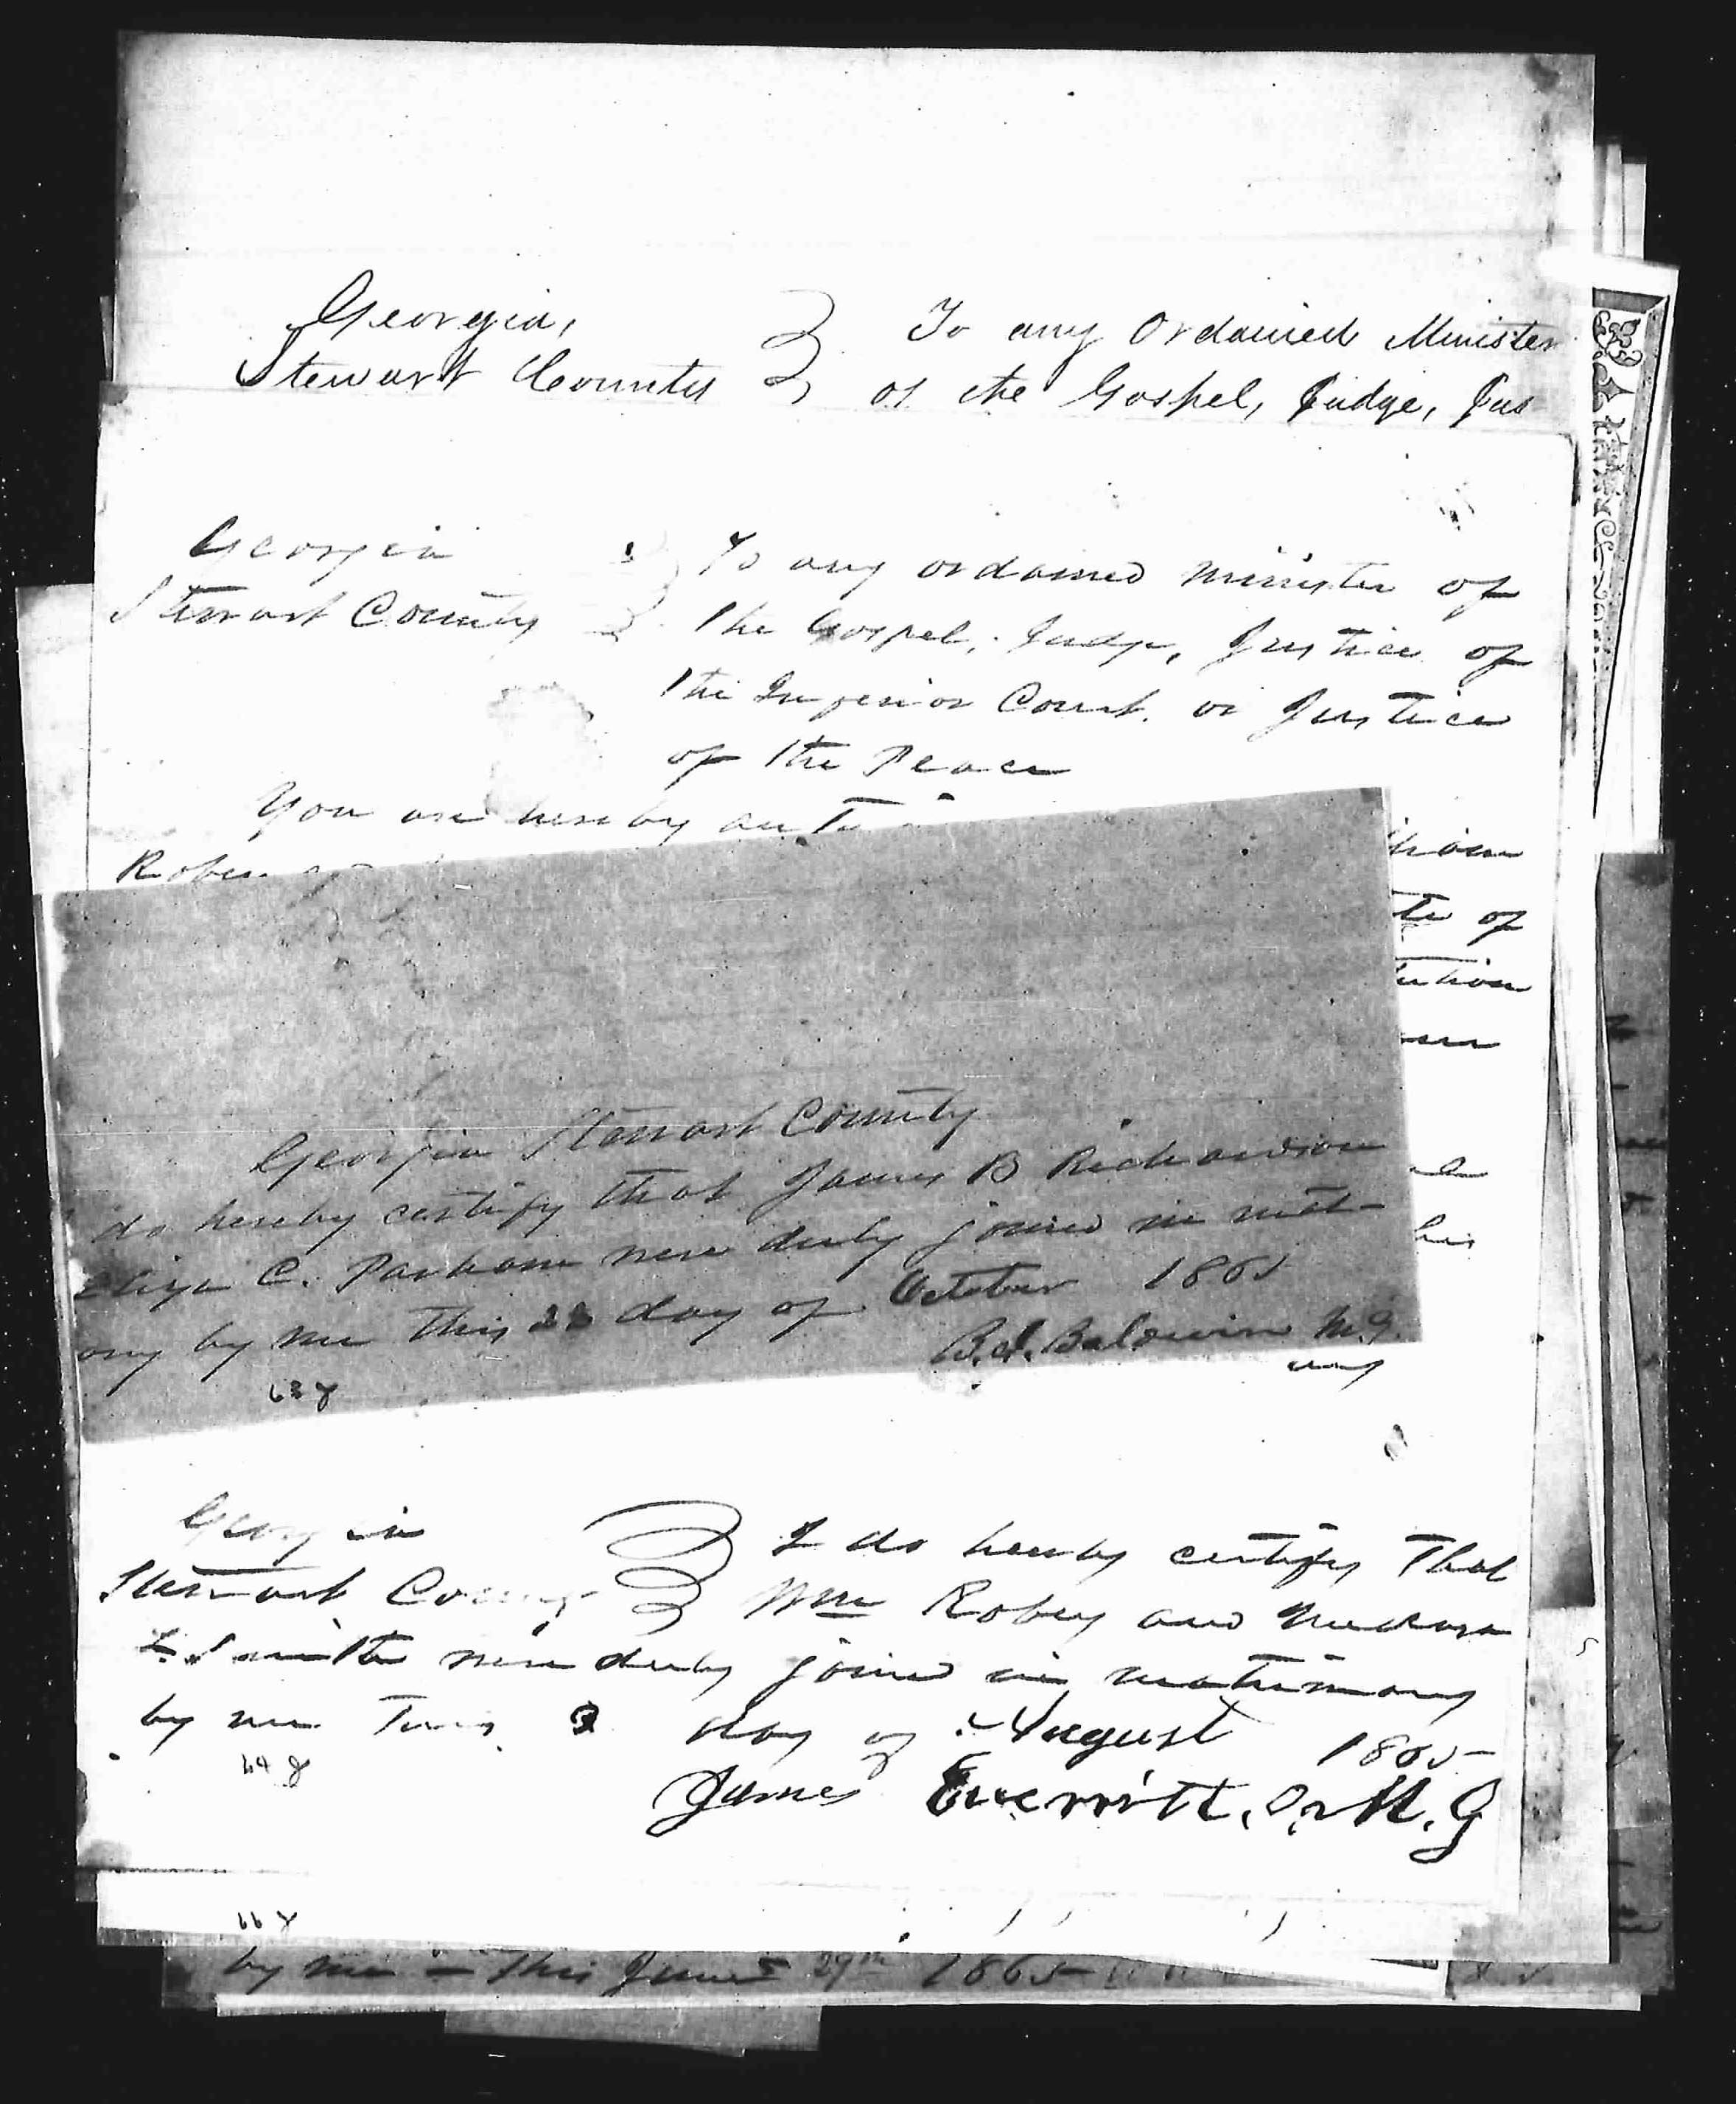 Georgia,
Stewart County
To any Ordained Minister
of the Gospel, Judge, Jus
Georgia
Stewart County
To any ordained minister of
the Gospel, Judge, Justice of
the Inferior Court, or Justice
of the Peace
You are hereby
tion
te of
tution
Georgia Stewart County
do hereby certify that James B Richardson
Eliza C. Parham were duly joined in mat-
ony by me this day of October 1865
Baldwin M.G.
63
Georgia
Stewart County
I do hereby certify That
Wm Robey and
Smith were duly joined in matrimony
by me This 3 day of August 1865
64
James Everritt, Or M. G
66
by me - this June 29th 1865